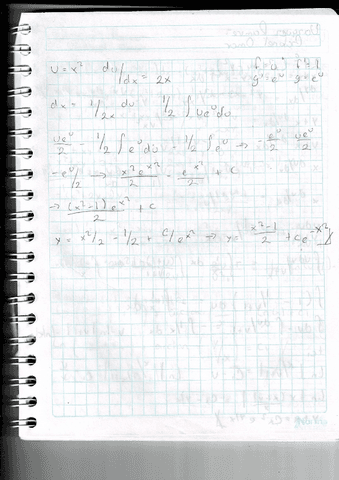 u = x² du/dx = 2x f = u f' = 1
g' = e^u g = e^u
dx = 1/2x du 1/2 ∫ ue^u du
ue^u/2 - 1/2 ∫ e^u du - 1/2 ∫ e^u → - e^u/2 ue^u/2
- e^u/2 → x²e^x²/2 - e^x²/2 + c
→ (x²-1)e^x²/2 + c
y = x²/2 - 1/2 + c/e^x² → y = x²-1/2 + ce^-x²//